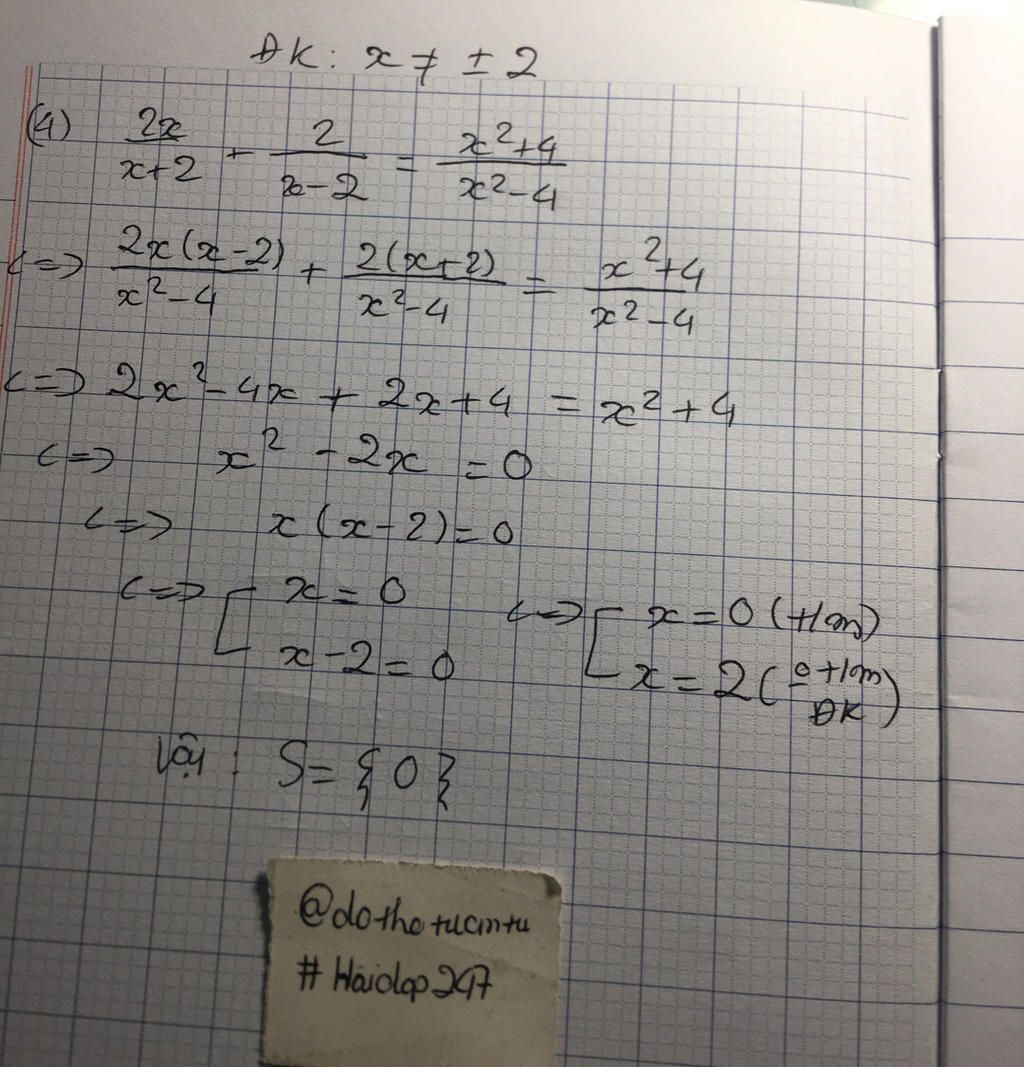 ĐK: x ≠ ± 2
(4) 2x/(x+2) + 2/(x-2) = (x²+4)/(x²-4)
<=> 2x(x-2)/(x²-4) + 2(x+2)/(x²-4) = (x²+4)/(x²-4)
<=> 2x²-4x + 2x+4 = x²+4
<=> x² - 2x = 0
<=> x(x-2)=0
<=> [ x=0 <=> [ x=0 (t/m)
x-2=0 x=2 (o t/m ĐK)
Vậy: S={0}
@dothotucmtu
# Hoidap247